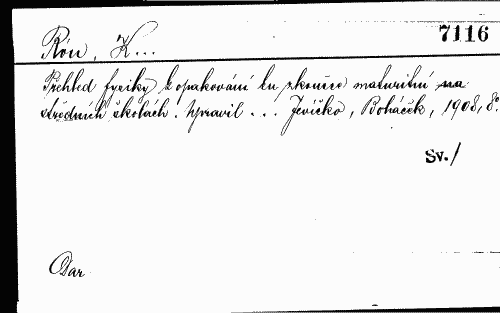 7116
Rón, K...
Přehled fysiky k opakování ku zkoušce maturitní na
středních školách. Upravil ... Jevíčko, Boháček, 1908, 8°.
Sv./
Dar